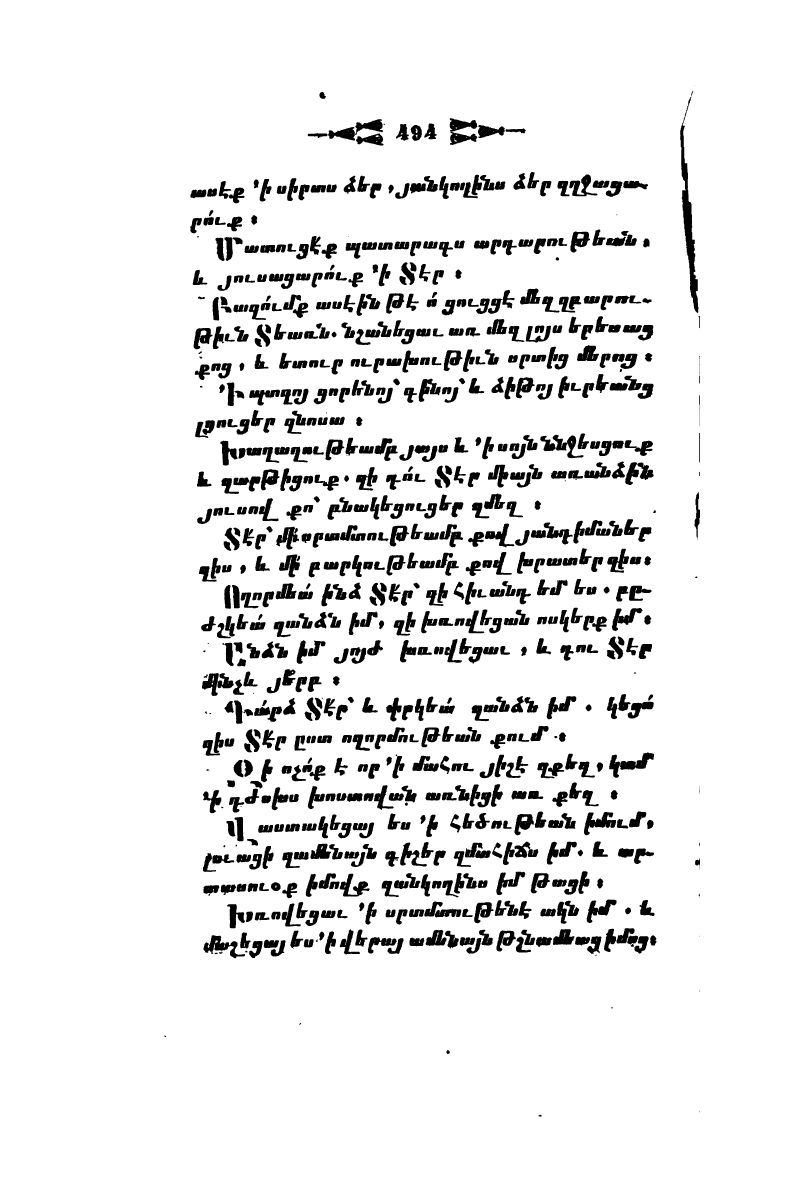 494
ասէք ՚ի սիրտս ձեր, յանկողինս ձեր զղջացա֊
րո՛ւք։
Մատուցէ՛ք պատարագս արդարութեան,
և յուսացարո՛ւք ՚ի Տէր։
Բազո՛ւմք ասէին թէ ո՛ ցուցցէ մեզ զբարու֊
թիւն Տեառն. նշանեցաւ առ մեզ լոյս երեսաց
քոց, և ետուր ուրախութիւն սրտից մերոց։
՚Ի պտղոյ ցորենոյ՝ գինոյ՝ և ձիթոյ իւրեանց
լցուցեր զնոսա։
Խաղաղութեամբ յայս և ՚ի սոյն ննջեսցուք
և զարթիցուք. զի դո՛ւ Տէր միայն առանձին
յուսով քո՝ բնակեցուցեր զմեզ։
Տէր՝ մի՛ սրտմտութեամբ քով յանդիմաներ
զիս, և մի՛ բարկութեամբ քով խրատեր զիս։
Ողորմեա՛ ինձ Տէր՝ զի հիւանդ եմ ես. բը֊
ժշկեա՛ զանձն իմ, զի խռովեցան ոսկերք իմ։
Անձն իմ յոյժ խռովեցաւ, և դու Տէր
մինչև յե՞րբ։
Դա՛րձ Տէր՝ և փրկեա՛ զանձն իմ. կեցո՛
զիս Տէր ըստ ողորմութեան քում։
Զի ոչո՛ք է որ ՚ի մահու յիշէ զքեզ, կամ
՚ի դժոխս խոստովան առնիցի առ քեզ։
Վաստակեցայ ես ՚ի հեծութեան իմում,
լուացի զամենայն գիշեր զմահիճս իմ. և ար֊
տասուօք իմովք զանկողինս իմ թացի։
Խռովեցաւ ՚ի սրտմտութենէ ակն իմ. և
մաշեցայ ես ՚ի վերայ ամենայն թշնամեաց իմոց։